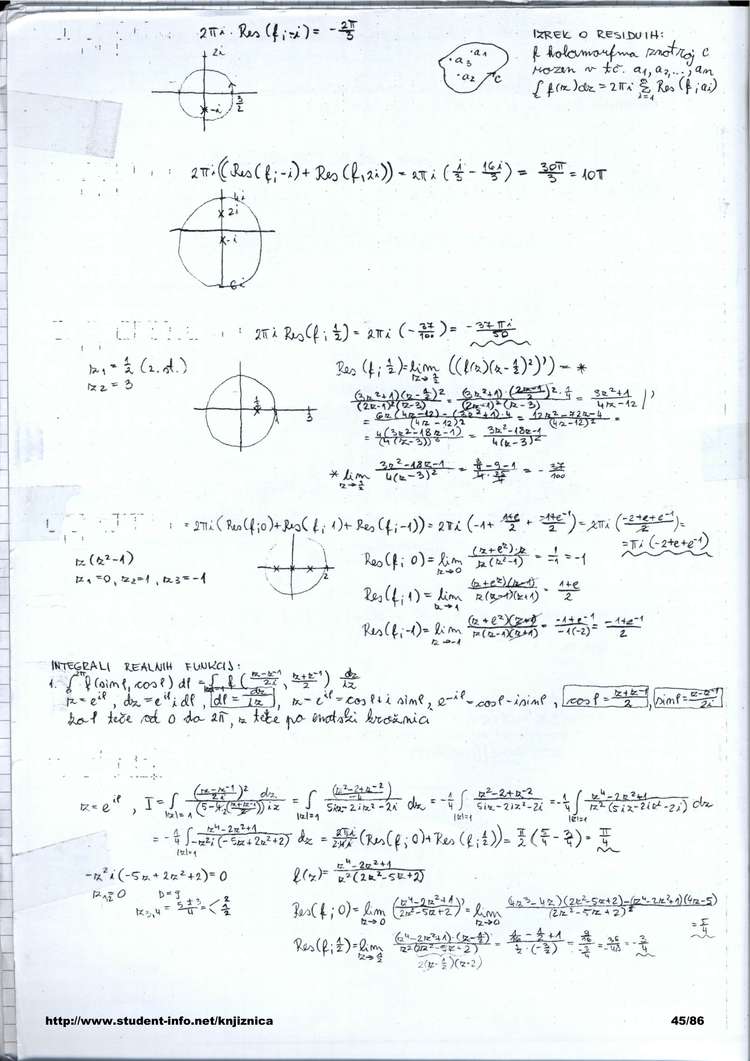 2πi · Res(f;-i) = -2π/3
2i
-i
3/2
IZREK O RESIDUIH:
f holomorfna znotraj C
razen v tč. a₁, a₂, ..., aₙ
∫ f(z)dz = 2πi Σ Res(f; aᵢ)
i=1
a₁
a₃
a₂
C
2πi((Res(f;-i) + Res(f,2i)) = 2πi (i/3 - 16i/3) = 30π/3 = 10π
4i
2i
-i
-6i
2πi Res(f; 1/2) = 2πi (-37/100) = -37πi/50
z₁ = 1/2 (2. st.)
z₂ = 3
1/2
1
3
Res(f; 1/2) = lim z→1/2 ((f(z)(z-1/2)²)') = *
(3z²+1)(z-1/2)²/(2z-1)²(z-3) = (3z²+1)·(2z-1)²·1/4/(2z-1)²(z-3) = 3z²+1/4z-12 /'
= 6z(4z-12)-(3z²+1)·4/(4z-12)² = 12z²-72z-4/(4z-12)² =
= 4(3z²-18z-1)/(4(z-3))² = 3z²-18z-1/4(z-3)²
* lim z→1/2 3z²-18z-1/4(z-3)² = 3/4-9-1/4·25/4 = -37/100
= 2πi(Res(f;0)+Res(f;1)+Res(f;-1)) = 2πi(-1+ 1+e/2 + -1+e⁻¹/2) = 2πi(-2+e+e⁻¹/2) =
= πi(-2+e+e⁻¹)
z(z²-1)
z₁=0, z₂=1, z₃=-1
2
Res(f; 0) = lim z→0 (z+e^z)·z/z(z²-1) = 1/-1 = -1
Res(f; 1) = lim z→1 (z+e^z)(z-1)/z(z-1)(z+1) = 1+e/2
Res(f;-1) = lim z→-1 (z+e^z)(z+1)/z(z-1)(z+1) = -1+e⁻¹/-1(-2) = -1+e⁻¹/2
INTEGRALI REALNIH FUNKCIJ:
1. ∫₀^2π f(sinφ, cosφ) dφ = ∫|z|=1 f(z-z⁻¹/2i, z+z⁻¹/2) dz/iz
z = e^iφ, dz = e^iφ i dφ, dφ = dz/iz, z = e^iφ = cosφ + i sinφ, e^-iφ = cosφ - i sinφ, cosφ = z+z⁻¹/2, sinφ = z-z⁻¹/2i
ko φ teče od 0 do 2π, z teče po enotski krožnici
z = e^iφ, I = ∫|z|=1 (z-z⁻¹/2i)²/(5-4(z+z⁻¹/2)) dz/iz = ∫|z|=1 (z²-2+z⁻²/-4)/5iz-2iz²-2i dz = -1/4 ∫|z|=1 z²-2+z⁻²/5iz-2iz²-2i = -1/4 ∫|z|=1 z⁴-2z²+1/z²(5iz-2iz²-2i) dz
= -1/4 ∫|z|=1 z⁴-2z²+1/-z²i(-5z+2z²+2) dz = 2πi/4i (Res(f;0)+Res(f;1/2)) = π/2 (5/4 - 3/4) = π/4
-z²i(-5z+2z²+2) = 0
z₁,₂=0 D=9
z₃,₄ = 5±3/4 = < 2 1/2
f(z) = z⁴-2z²+1/z²(2z²-5z+2)
Res(f; 0) = lim z→0 (z⁴-2z²+1/2z²-5z+2)' = lim z→0 (4z³-4z)(2z²-5z+2)-(z⁴-2z²+1)(4z-5)/(2z²-5z+2)²
= 5/4
Res(f;1/2) = lim z→1/2 (z⁴-2z²+1)·(z-1/2)/z²(2z²-5z+2) = 1/16-1/2+1/1/2·(-3/2) = 9/16/-3/4 = 36/-48 = -3/4
2(z-1/2)(z-2)
http://www.student-info.net/knjiznica
45/86